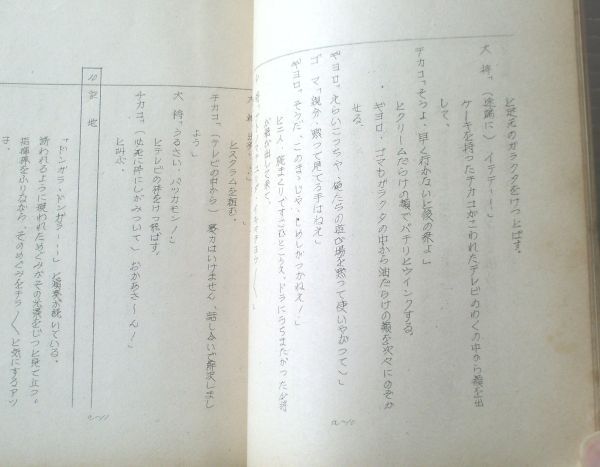 と足元のガラクタをけっとばす。
大将「(途端に)イテテ…!」
ケーキを持ったチカコがこわれたテレビのわくの中から顔を出
して、
チカコ「そうよ、早く行かないと後の祭よ」
とクリームだらけの顔でパチリとウインクする。
ギヨロ、ゴマもガラクタの中から油だらけの顔を次々にのぞか
せる。
ギヨロ「えらいこっちゃ、俺たちの遊び場を黙って使いやがって」
ゴマ「親分、黙って見てる手はねえ」
ギヨロ「そうだ、このまゝじゃ、しめしがつかねえ!」
と二人、腕まくりですごむところへ、ドラにうちまたがった少将
が
とスクラムを組む。
チカコ「(テレビの中から)暴力はいけません、話し合いで解決しまし
よう」
大将「うるさい、バッカモン!」
とテレビの枠をけっ飛ばす。
チカコ「(必死に枠にしがみついて)おかあさ〜ん!」
と叫ぶ。
10 空地
「ドンガラ・ドンガラ…!」と演奏が続いている。
誘われるように現われためぐみがその光景をじっと見て立つ。
指揮棒を振りながら、そのめぐみをチラ/\と気にするアツ
子。